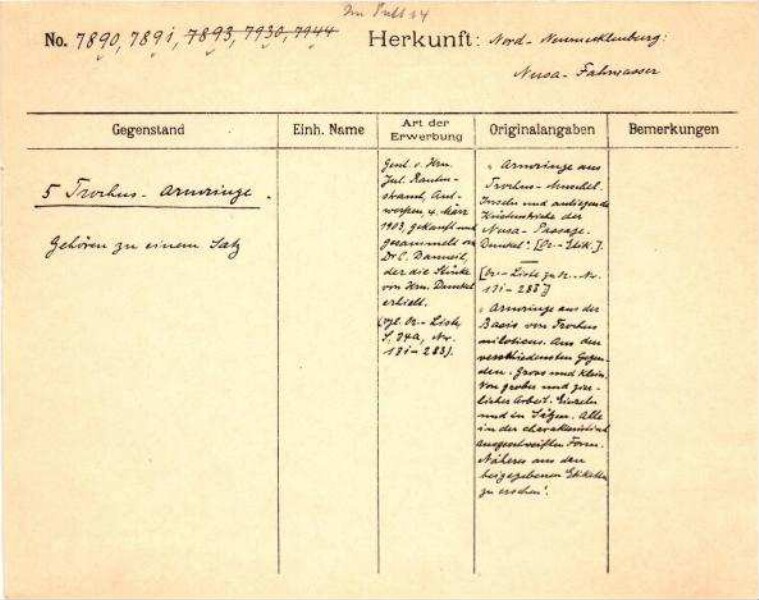 Im Pult 14
No. 7890, 7891, 7893, 7930, 7944 Herkunft: Nord-Neumecklenburg:
Nusa-Fahrwasser
Gegenstand
Einh. Name
Art der
Erwerbung
Originalangaben
Bemerkungen
5 Trochus-Armringe.
Gehören zu einem Satz
Gesch. v. Hrn.
Jul. Rauten-
strauch, Ant-
werpen, 4. März
1903, gekauft und
gesammelt von
Dr. C. Danneil,
der die Stücke
von Hrn. Dunckel
erhielt.
(vgl. Or.-Liste,
S. 24a, Nr.
181-283).
„Armringe aus
Trochus-Muschel.
Inseln und anliegende
Küstenstriche der
Nusa-Passage.
Dunckel". [Or.-Etik.].
[Or.-Liste zu Nr.
181-283]
„Armringe aus der
Basis von Trochus
niloticus. Aus den
verschiedensten Gegen-
den. Gross und klein.
Von grober und zier-
licher Arbeit. Einzeln
und in Sätzen. Alle
in der charakteristisch
ausgeschweiften Form.
Näheres aus den
beigegebenen Etiketten
zu ersehen".